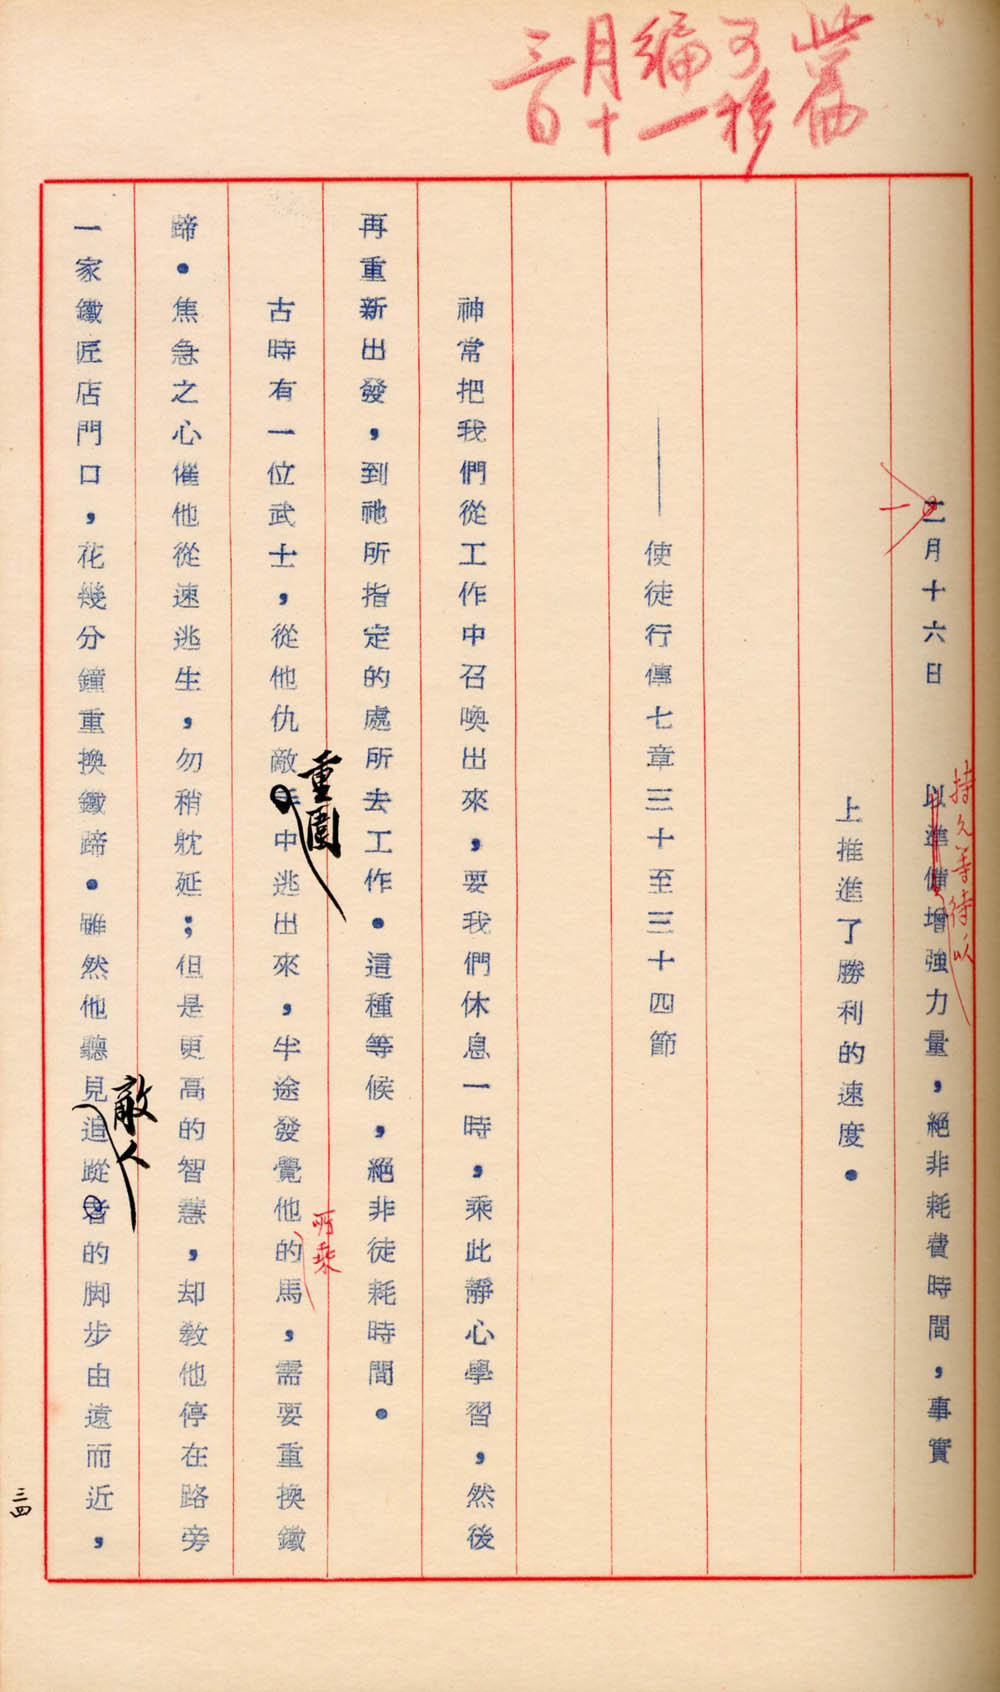 此篇
可移
編一
月十
三日
二月十六日　以準備增強力量，絕非耗費時間，事實
一
持久等待以
上推進了勝利的速度。
——使徒行傳七章三十至三十四節
神常把我們從工作中召喚出來，要我們休息一時，乘此靜心學習，然後
再重新出發，到祂所指定的處所去工作。這種等候，絕非徒耗時間。
重圍
所乘
古時有一位武士，從他仇敵手中逃出來，半途發覺他的馬，需要重換鐵
蹄。焦急之心催他從速逃生，勿稍躭延；但是更高的智慧，却教他停在路旁
敵人
一家鐵匠店門口，花幾分鐘重換鐵蹄。雖然他聽見追蹤者的脚步由遠而近，
三四